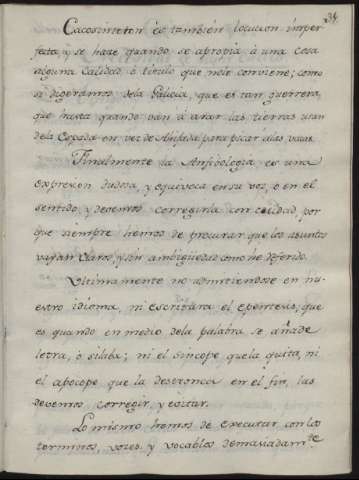 34
Cacosinteton és tambien locucion imper-
fecta, y se hace quando se apropia à una cosa
alguna calidad, ò titulo que no le conviene; como
si digeramos de la Galicia, que es tan guerrera,
que hasta quando van à arar las tierras usan
de la Espada en vez de Ahijada para picar à las vacas.
Finalmente la Anfibologia es una
expresion dudosa, y equivoca en su voz, ò en el
sentido y devemos corregirla con cuidad, por
que siempre hemos de procurar que los asuntos
vayan claros y sin ambiguedad como hè deferido.
Ultimamente no admitiendose en nu-
estro idioma, ni escritura el epentesis, que
es quando en medio de la palabra se añade
letra, ò silaba; ni el sincope que la quita, ni
el apocope que la destronca en el fin, las
devemos corregir, y evitar.
Lo mismo hemos de executar con los
terminos, voces, y vocablos demasiadamte